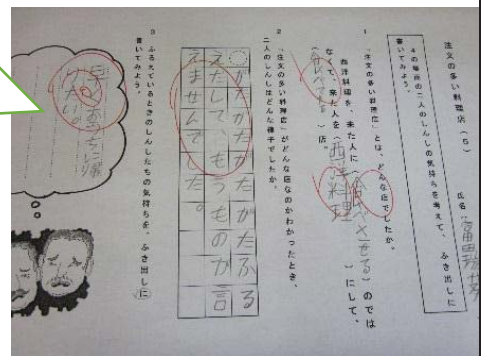 注文の多い料理店（5）
氏名
4の場面の二人のしんしの気持ちを考えて、ふき出しに
書いてみよう。
1 「注文の多い料理店」とは、どんな店でしたか。
西洋料理を、来た人に（食べさせる）のでは
なくて、来た人を（西洋料理）にして、
（食べてる）店。
2 「注文の多い料理店」がどんな店なのかわかったとき、
二人のしんしはどんな様子でしたか。
がたがたがたがたふる
えだして、もうものが言
えませんでした。
3 ふるえているときのしんしたちの気持ちを、ふき出しに
書いてみよう。
早く